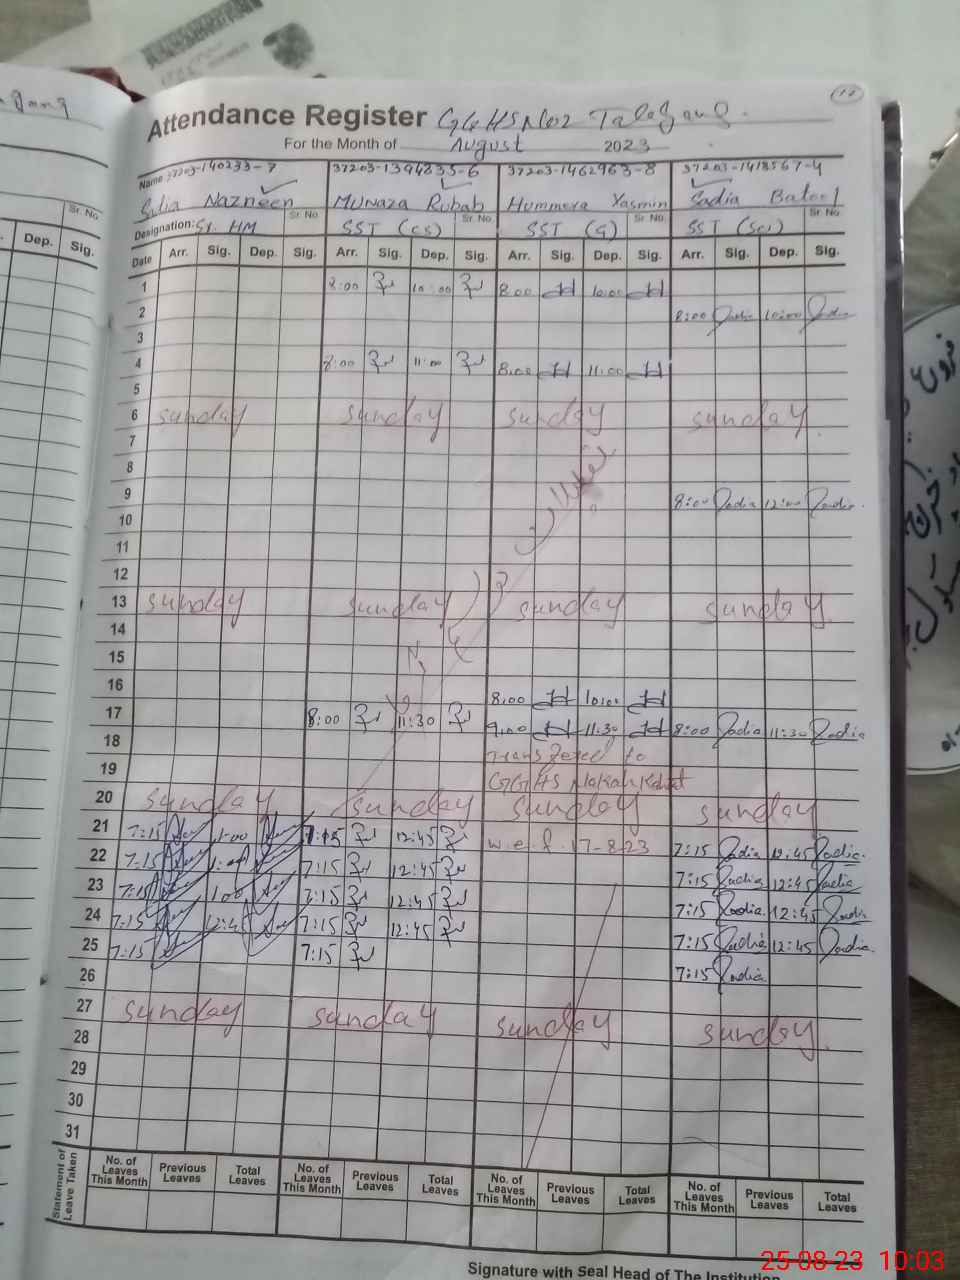 Attendance Register GGHS No2 Talagang
For the Month of August 2023
Name 37203-140233-7 37203-1394835-6 37203-1462963-8 37203-1418567-4
Sadia Nazneen Munaza Rubab Hummera Yasmin Sadia Batool
Designation: Sr. HM Sr. No. SST (cs) Sr. No. SST (G) Sr. No. SST (Sci) Sr. No.
Date Arr. Sig. Dep. Sig. Arr. Sig. Dep. Sig. Arr. Sig. Dep. Sig. Arr. Sig. Dep. Sig.
1 8:00 10:00 8.00 10.00
2 8:00 Sadia 10:00 Sadia
3
4 8:00 11:00 8.00 11.00
5
6 sunday sunday sunday sunday
7
8
9 8:00 Sadia 12:00 Sadia
10
11
12
13 sunday sunday sunday sunday
14
15
16 8.00 10.00
17 8:00 11:30 9.00 11.30 8:00 Sadia 11:30 Sadia
18 Transfered to
19 GGHS
20 sunday sunday sunday sunday
21 7:15 1:00 7:15 12:45 w.e.f. 17-8-23 7:15 Sadia 12:45 Sadia
22 7:15 1:00 7:15 12:45 7:15 Sadia 12:45 Sadia
23 7:15 1:00 7:15 12:45 7:15 Sadia 12:45 Sadia
24 7:15 12:45 7:15 12:45 7:15 Sadia 12:45 Sadia
25 7:15 7:15 7:15 Sadia
26
27 sunday sunday sunday sunday
28
29
30
31
Statement of Leave Taken
No. of Leaves This Month Previous Leaves Total Leaves No. of Leaves This Month Previous Leaves Total Leaves No. of Leaves This Month Previous Leaves Total Leaves No. of Leaves This Month Previous Leaves Total Leaves
Signature with Seal Head of The Institution
25-08-23 10:03
Sr. No.
Dep. Sig.